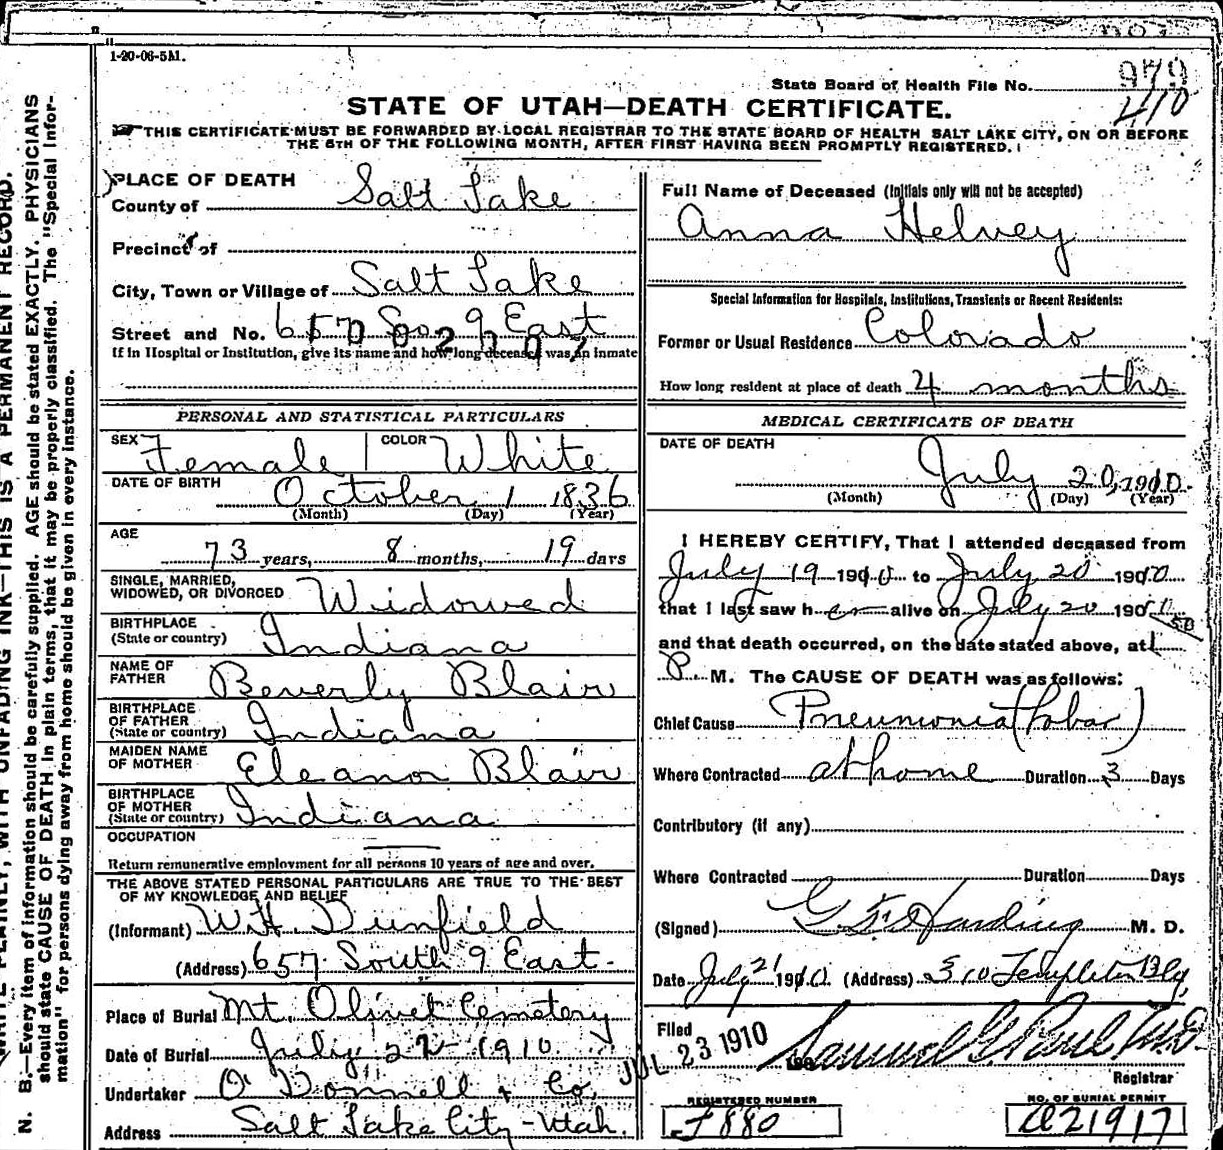 1-20-06-5M.
State Board of Health File No. 979
410
STATE OF UTAH—DEATH CERTIFICATE.
THIS CERTIFICATE MUST BE FORWARDED BY LOCAL REGISTRAR TO THE STATE BOARD OF HEALTH SALT LAKE CITY, ON OR BEFORE
THE 5TH OF THE FOLLOWING MONTH, AFTER FIRST HAVING BEEN PROMPTLY REGISTERED.
PLACE OF DEATH
County of Salt Lake
Precinct of
City, Town or Village of Salt Lake
Street and No. 657 So. 9 East
If in Hospital or Institution, give its name and how long deceased was an inmate
PERSONAL AND STATISTICAL PARTICULARS
SEX Female COLOR White
DATE OF BIRTH October 1 1836
(Month) (Day) (Year)
AGE
73 years, 8 months, 19 days
SINGLE, MARRIED,
WIDOWED, OR DIVORCED Widowed
BIRTHPLACE
(State or country) Indiana
NAME OF
FATHER Beverly Blair
BIRTHPLACE
OF FATHER
(State or country) Indiana
MAIDEN NAME
OF MOTHER Eleanor Blair
BIRTHPLACE
OF MOTHER
(State or country) Indiana
OCCUPATION
Return remunerative employment for all persons 10 years of age and over.
THE ABOVE STATED PERSONAL PARTICULARS ARE TRUE TO THE BEST
OF MY KNOWLEDGE AND BELIEF
(Informant) W.H. Dunfield
(Address) 657 South 9 East.
Place of Burial Mt. Olivet Cemetery
Date of Burial July 22 1910
Undertaker O'Donnell & Co,
Address Salt Lake City - Utah.
Full Name of Deceased (Initials only will not be accepted)
Anna Helvey
Special Information for Hospitals, Institutions, Transients or Recent Residents:
Former or Usual Residence Colorado
How long resident at place of death 4 months
MEDICAL CERTIFICATE OF DEATH
DATE OF DEATH
July 20, 1910.
(Month) (Day) (Year)
I HEREBY CERTIFY, That I attended deceased from
July 19 1910 to July 20 1910
that I last saw her alive on July 20 1910
and that death occurred, on the date stated above, at 1 50
P. M. The CAUSE OF DEATH was as follows:
Chief Cause Pneumonia (Lobar)
Where Contracted at home Duration 3 Days
Contributory (if any)
Where Contracted Duration Days
(Signed) G. F. Harding M. D.
Date July 21 1910. (Address) 510 Templeton Bldg,
Filed JUL 23 1910 Samuel G. Paul M.D.
Registrar
REGISTERED NUMBER
J 880
NO. OF BURIAL PERMIT
A21917
N. B.—Every item of information should be carefully supplied. AGE should be stated EXACTLY. PHYSICIANS
should state CAUSE OF DEATH in plain terms, that it may be properly classified. The "Special Infor-
mation" for persons dying away from home should be given in every instance.
WRITE PLAINLY, WITH UNFADING INK—THIS IS A PERMANENT RECORD.